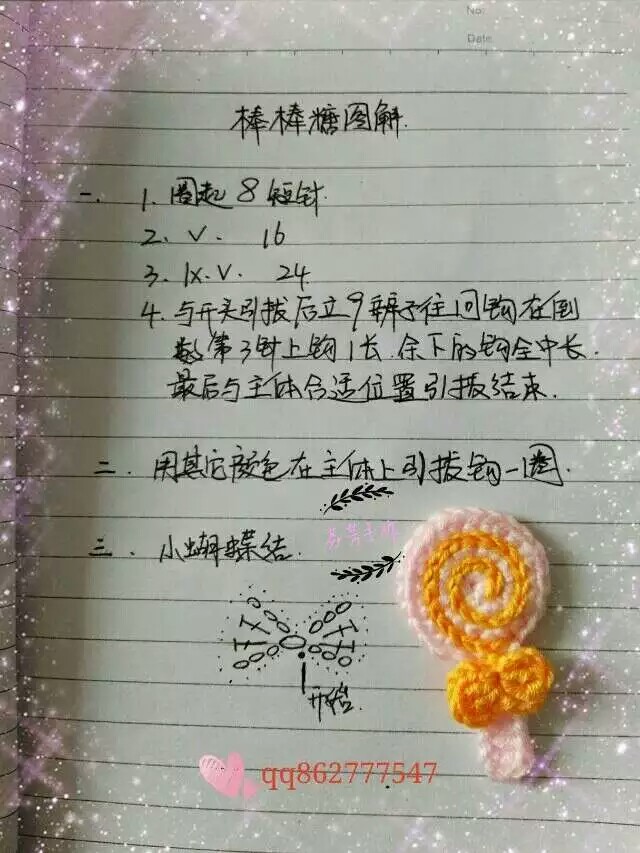 No:
Date
棒棒糖图解.
一. 1. 圈起 8 短针.
2. V. 16
3. 1X.V. 24
4. 与开头引拔后立9辫子往回钩在倒
数第3针上钩1长.余下的钩全中长.
最后与主体合适位置引拔结束.
二. 用其它颜色在主体上引拔钩一圈.
三. 小蝴蝶结.
开始
qq862777547